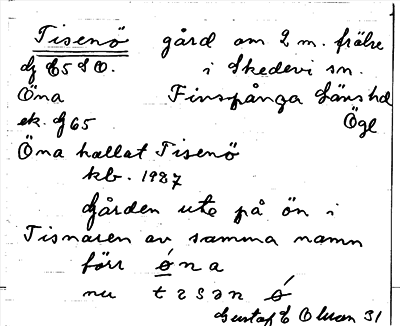 Tisenö gård om 2 m. frälse
dj 65 SO. i Skedevi sn.
Öna Finspånga Länshd
ek. dj 65 Ögl
Öna kallat Tisenö
kb. 1987
Gården ute på ön i
Tisnaren av samma namn
förr óna
nu tisən ö́
Gustaf E Olsson 31